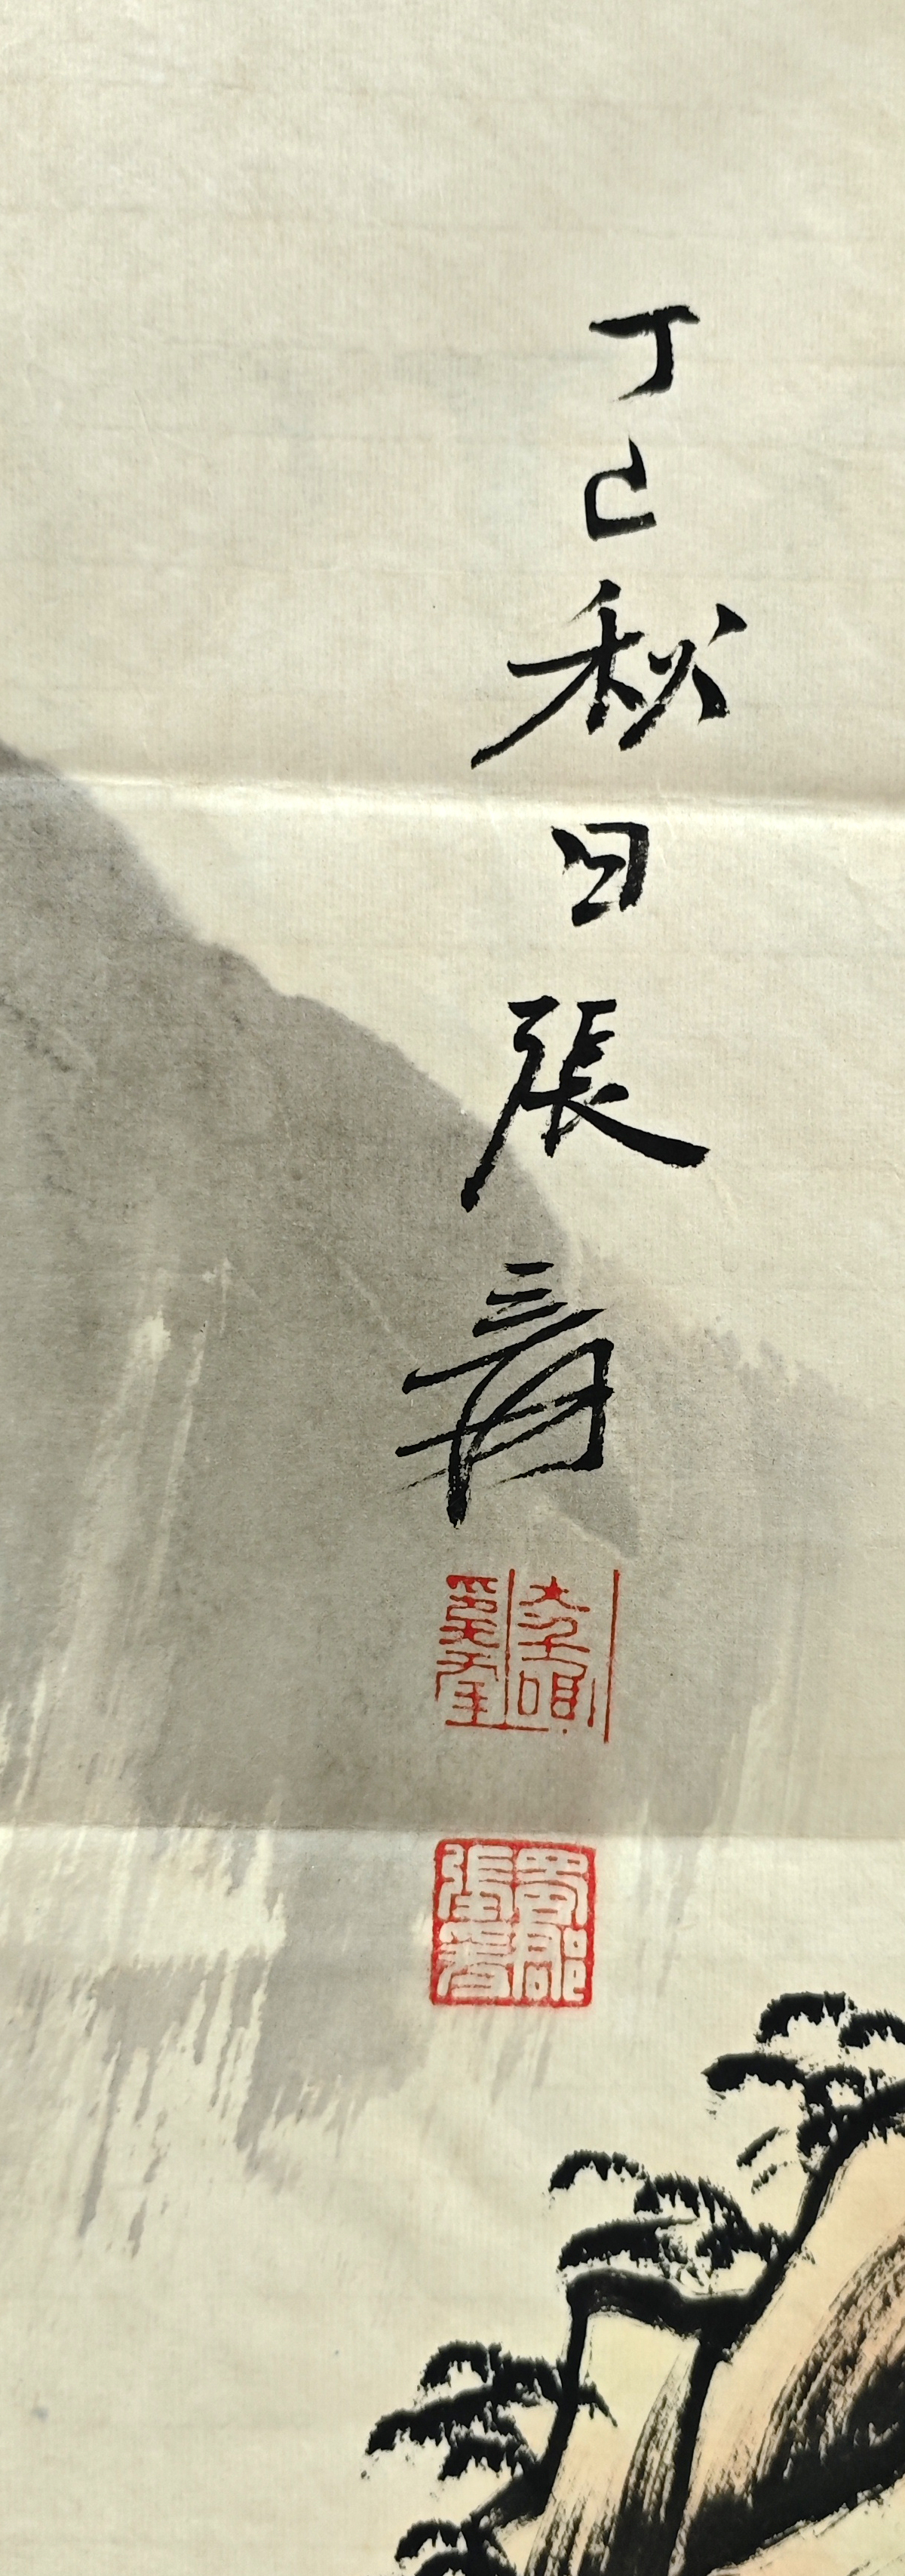 丁巳秋日張爰
蜀郡張爰